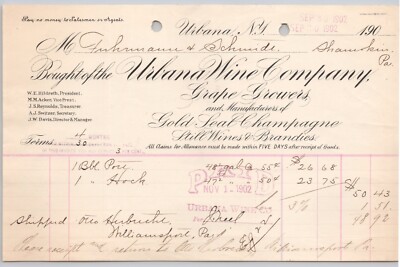 Pay no money to Salesmen or Agents.
Urbana, N.Y. SEP 1902 190
M Fuhrmann & Schmidt Shamokin
Pa.
Bought of the Urbana Wine Company,
Grape Growers,
and Manufacturers of
Gold Seal Champagne
Still Wines & Brandies.
W. E. Hildreth, President.
M. M. Acker, Vice Prest.
J. S. Reynolds, Treasurer.
A. J. Switzer, Secretary.
J. W. Davis, Director & Manager.
All Claims for Allowance must be made within FIVE DAYS after receipt of Goods.
Terms 4 MONTHS
30
1 Bbl Port 48 gal @ 55¢ 26 68
1 " Hock 50¢ 23 75 50 43
PAID
NOV 1 1902
URBANA WINE CO
3% 1 51
48 92
Shipped
Williamsport, Pa
Please receipt and return to
Williamsport Pa